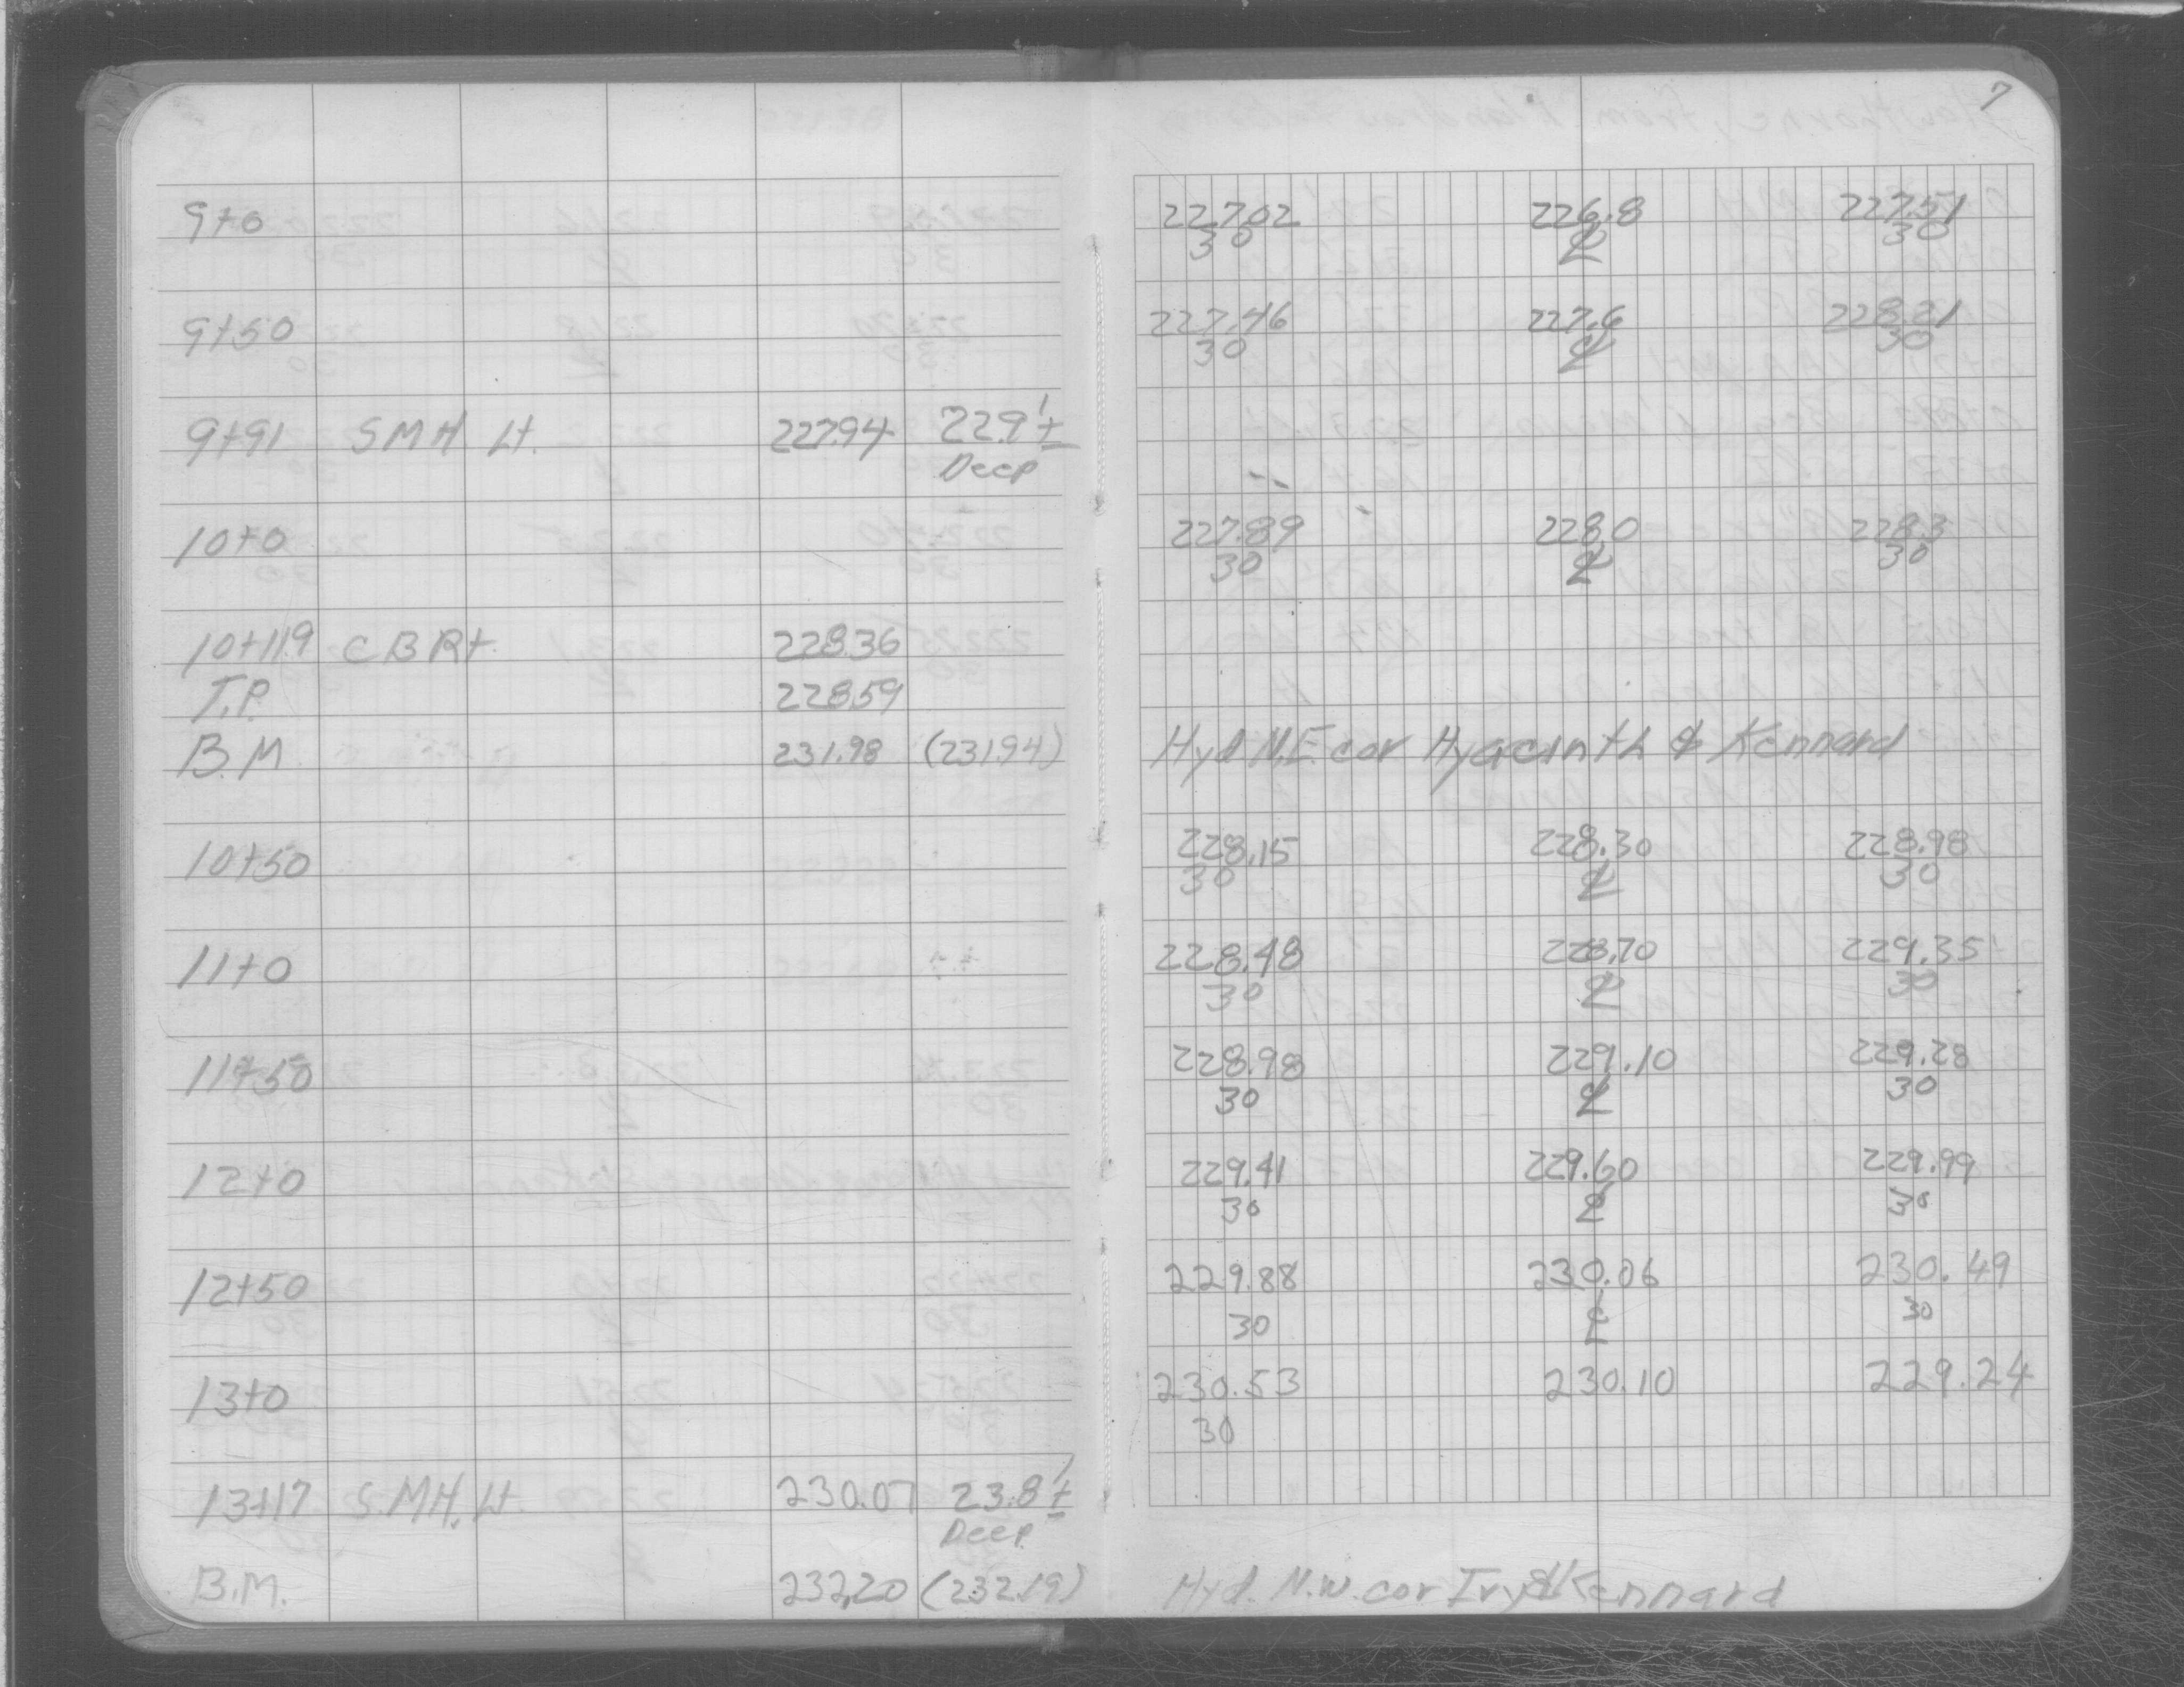 7
9+0 227.02 226.8 227.51
30 ℄ 30
9+50 227.46 227.6 228.21
30 ℄ 30
9+91 SMH Lt. 227.94 22.9'±
Deep
10+0 227.89 228.0 228.3
30 ℄ 30
10+11.9 CB Rt. 228.36
T.P. 228.59
B.M. 231.98 (231.94) Hyd N.E. cor Hyacinth & Kennard
10+50 228.15 228.30 228.98
30 ℄ 30
11+0 228.48 228.70 229.35
30 ℄ 30
11+50 228.98 229.10 229.28
30 ℄ 30
12+0 229.41 229.60 229.99
30 ℄ 30
12+50 229.88 230.06 230.49
30 ℄ 30
13+0 230.53 230.10 229.24
30
13+17 S.MH. Lt. 230.07 23.8'±
Deep
B.M. 232.20 (232.19) Hyd. N.W. cor Ivy & Kennard